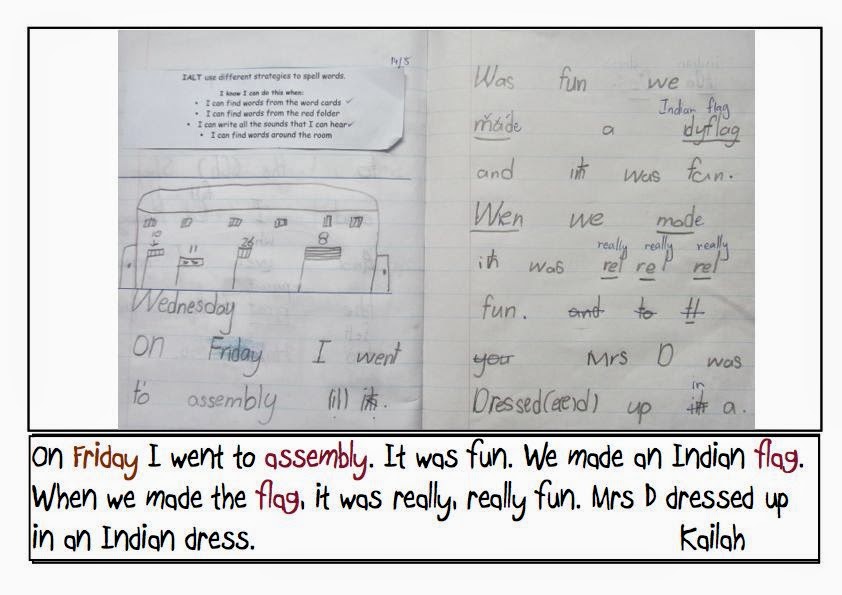 14/5
IALT use different strategies to spell words.
I know I can do this when:
• I can find words from the word cards ✓
• I can find words from the red folder
• I can write all the sounds that I can hear ✓
• I can find words around the room
10
11
26
8
Wednesday
On Friday I went
to assembly (il) it.
Was fun we
Indian flag
made a dyflag
and it was fun.
When we made
really really really
it was rel rel rel
fun. and to tt
you Mrs D was
in
Dressed(ered) up it a.
On Friday I went to assembly. It was fun. We made an Indian flag.
When we made the flag, it was really, really fun. Mrs D dressed up
in an Indian dress. Kailah